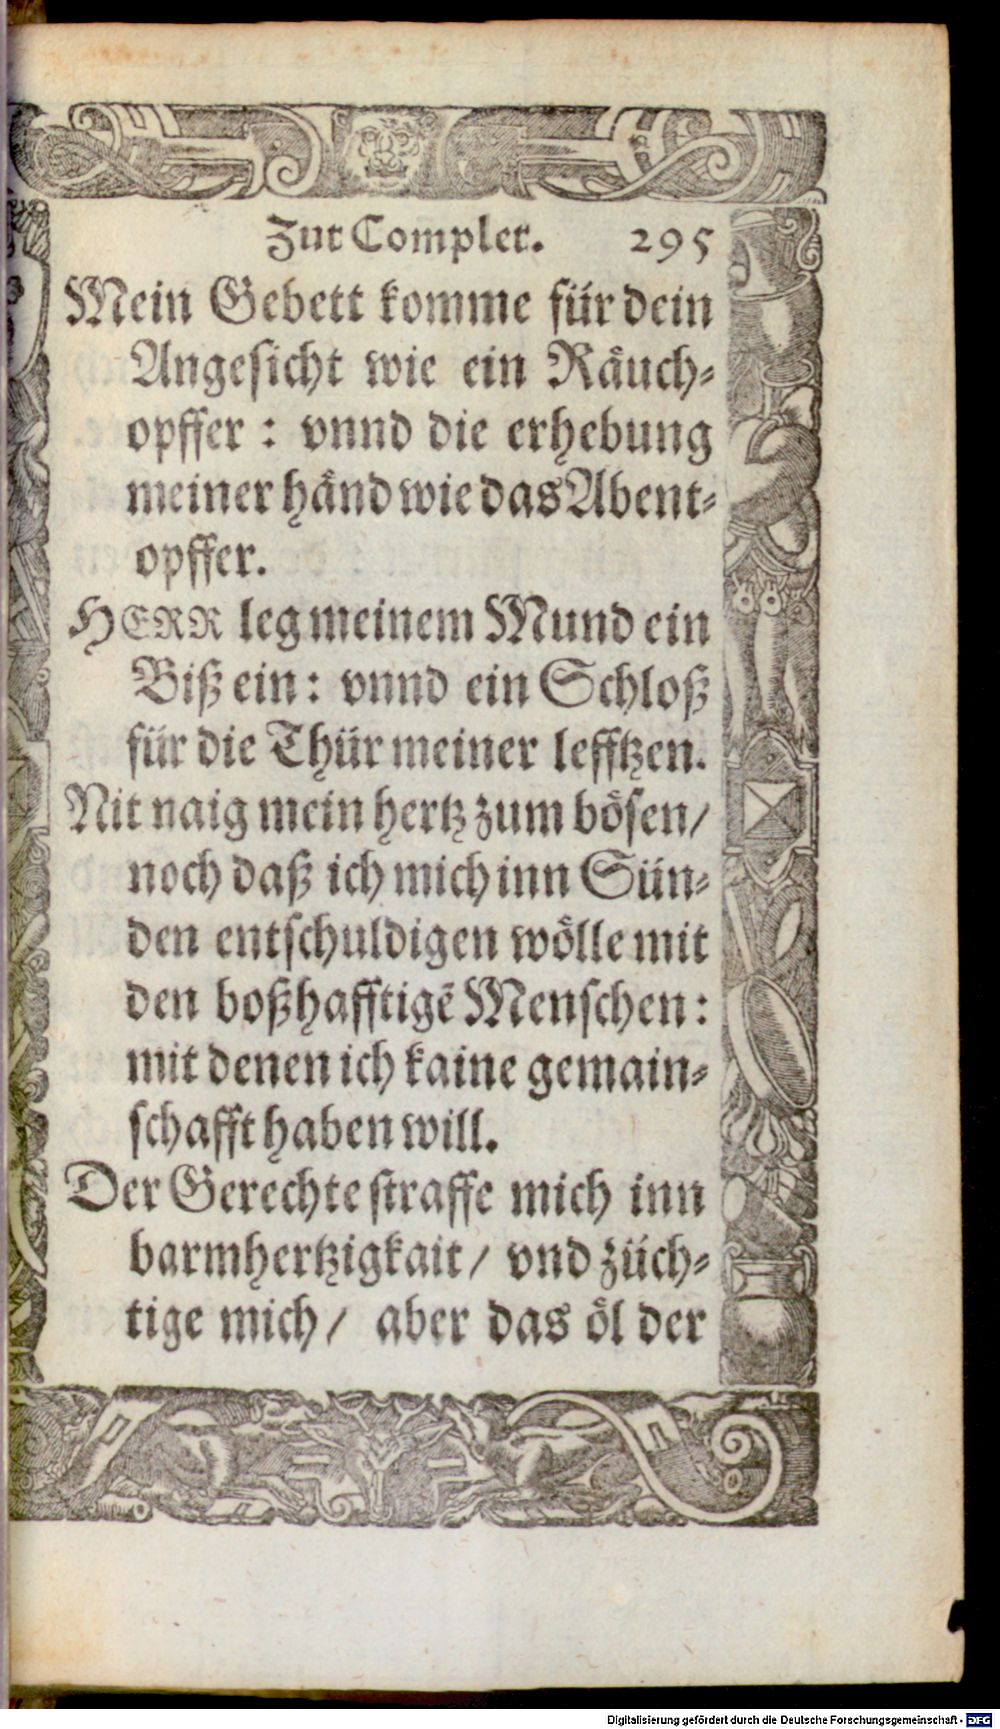 Zur Complet. 295
Mein Gebett komme für dein
Angesicht wie ein Räuch⸗
opffer : vnnd die erhebung
meiner händ wie das Abent⸗
opffer.
HERR leg meinem Mund ein
Biß ein: vnnd ein Schloß
für die Thür meiner lefftzen.
Nit naig mein hertz zum bösen/
noch daß ich mich inn Sün⸗
den entschuldigen wölle mit
den boßhafftigē Menschen:
mit denen ich kaine gemain⸗
schafft haben will.
Der Gerechte straffe mich inn
barmhertzigkait/ vnd züch⸗
tige mich/ aber das öl der
Digitalisierung gefördert durch die Deutsche Forschungsgemeinschaft - DFG